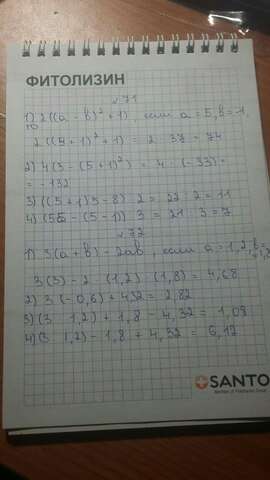 ФИТОЛИЗИН
№ 71
1) 2((a - b)² + 1), если a = 5, b = -1,
то
2((5+1)² + 1) = 2 37 = 74
2) 4(3 - (5+1)²) = 4 · (-33) =
= -132
3) ((5+1)5 - 8) 2 = 22 : 2 = 11
4) (5 - (5 - 1)) 3 = 21 : 3 = 7
№ 72
1) 3(a + b) - 2ab, если a = 1,2, b =
= 1,8
3(3) - 2 (1,2) (1,8) = 4,68
2) 3(-0,6) + 4,32 = 2,82
3) (3 1,2) + 1,8 - 4,32 = 1,08
4) (3 1,2) - 1,8 + 4,32 = 6,12
SANTO